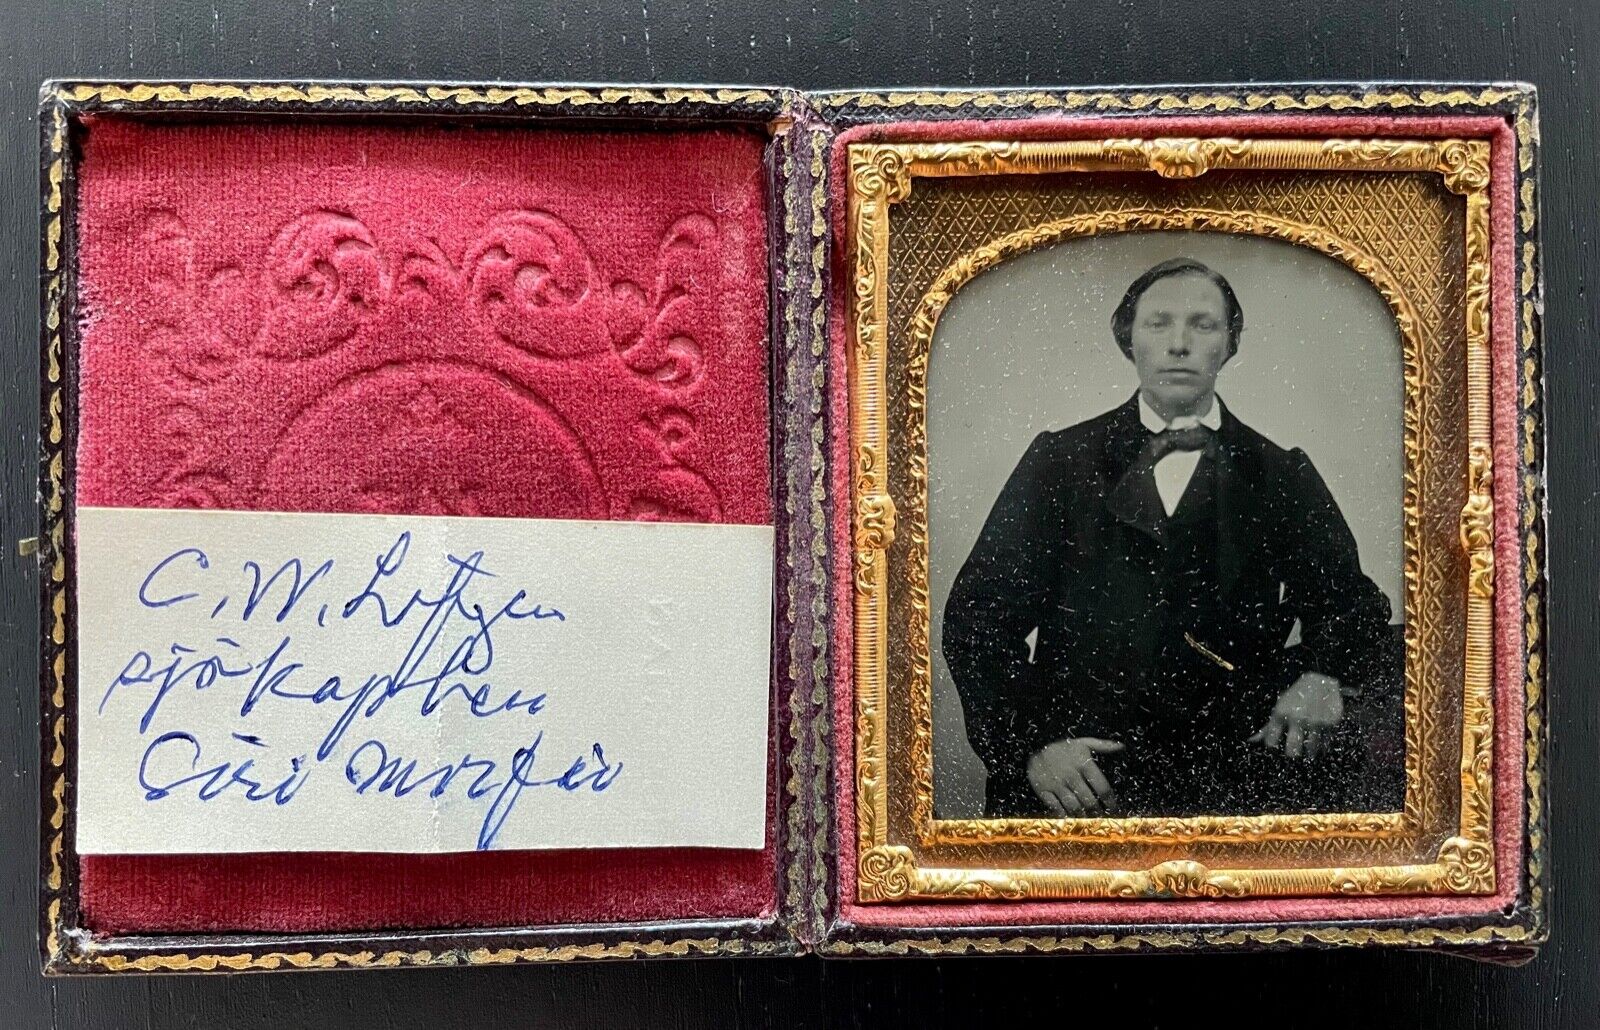 C. W. Löfgren
sjökapten
Siri morfar